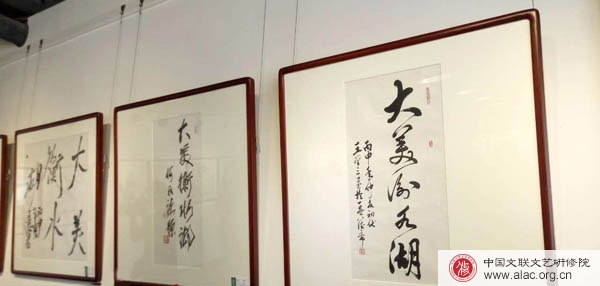 大美
衡水
湖
大美衡水湖
大美衡水湖
丙申年仲夏初伏
中国文联文艺研修院
www.alac.org.cn